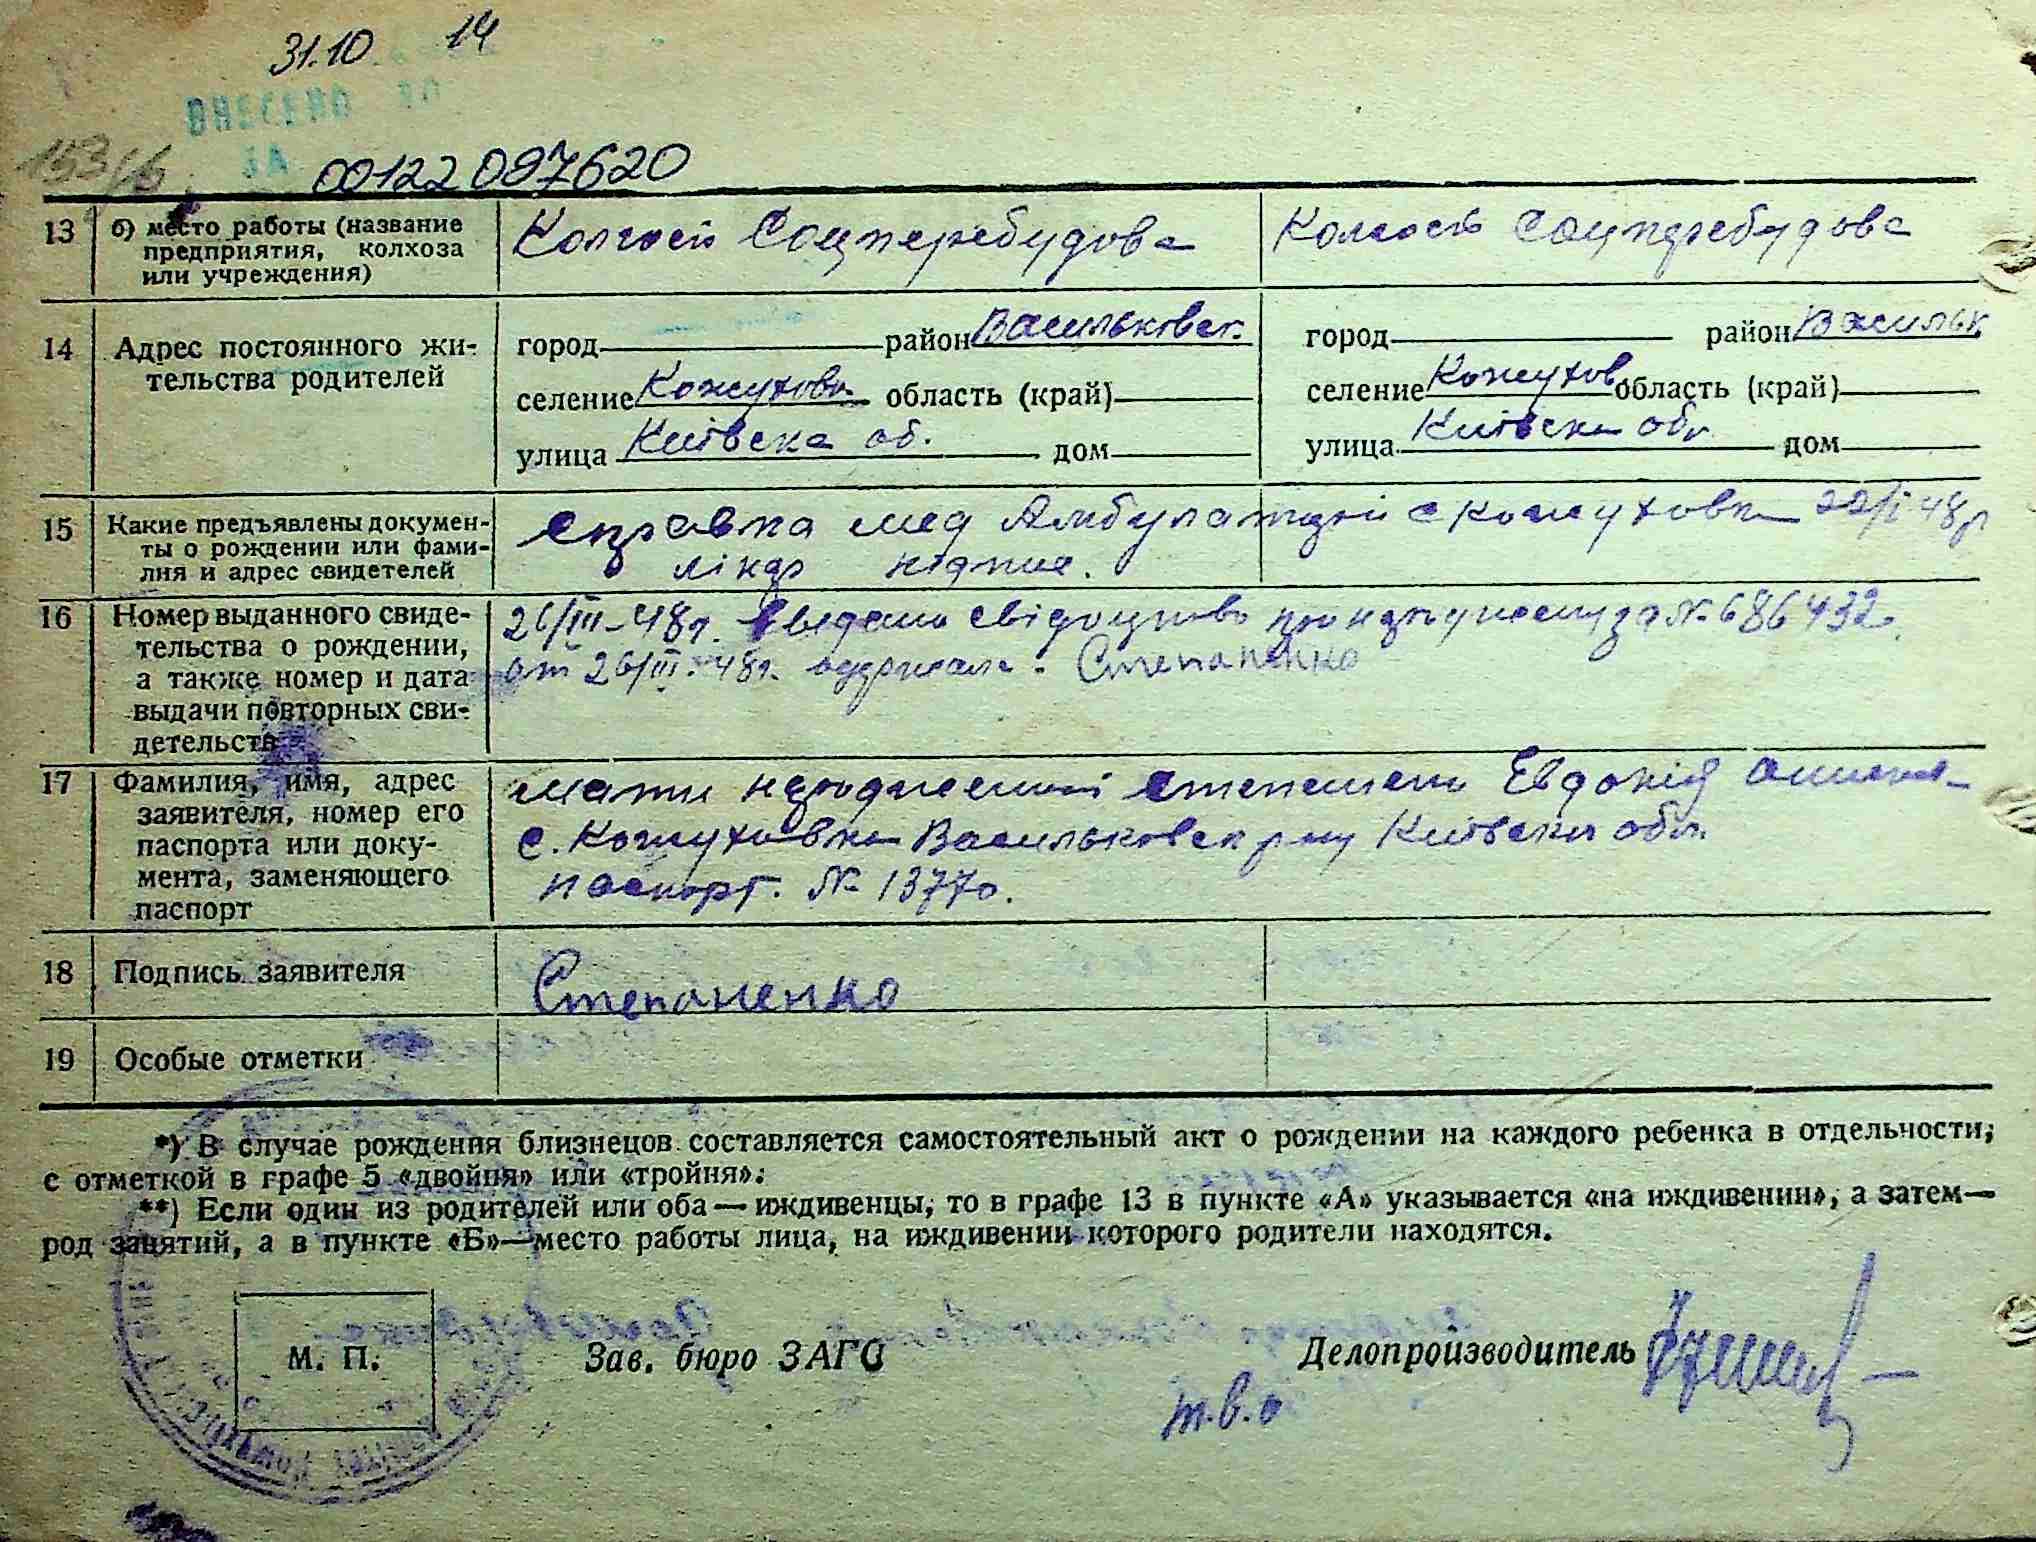 31.10 14
ВНЕСЕНО ДО
153/б
00122097620
13 б) место работы (название предприятия, колхоза или учреждения)
Колгосп Соцперебудова
Колгосп Соцперебудова
14 Адрес постоянного жи-
тельства родителей
город район Васильковск.
селение Кожухова область (край)
улица Київска об. дом
город район Васильк
селение Кожухов область (край)
улица Київска обл дом
15 Какие предъявлены докумен-
ты о рождении или фами-
лия и адрес свидетелей
справка мед Амбулаторії с Кожуховка 22/I 48р
лікар підпис.
16 Номер выданного свиде-
тельства о рождении,
а также номер и дата
выдачи повторных сви-
детельств
26/III-48р. свідоцтво за № 686432
от 26/III-48р. одержала. Степаненко
17 Фамилия, имя, адрес
заявителя, номер его
паспорта или доку-
мента, заменяющего
паспорт
мати Евдокія
с. Кожуховка Васильковск р-ну Київска обл.
паспорт. № 13770.
18 Подпись заявителя
Степаненко
19 Особые отметки
*) В случае рождения близнецов составляется самостоятельный акт о рождении на каждого ребенка в отдельности,
с отметкой в графе 5 «двойня» или «тройня».
**) Если один из родителей или оба — иждивенцы, то в графе 13 в пункте «А» указывается «на иждивении», а затем—
род занятий, а в пункте «Б»—место работы лица, на иждивении которого родители находятся.
М. П.
Зав. бюро ЗАГС
Делопроизводитель
т.в.о